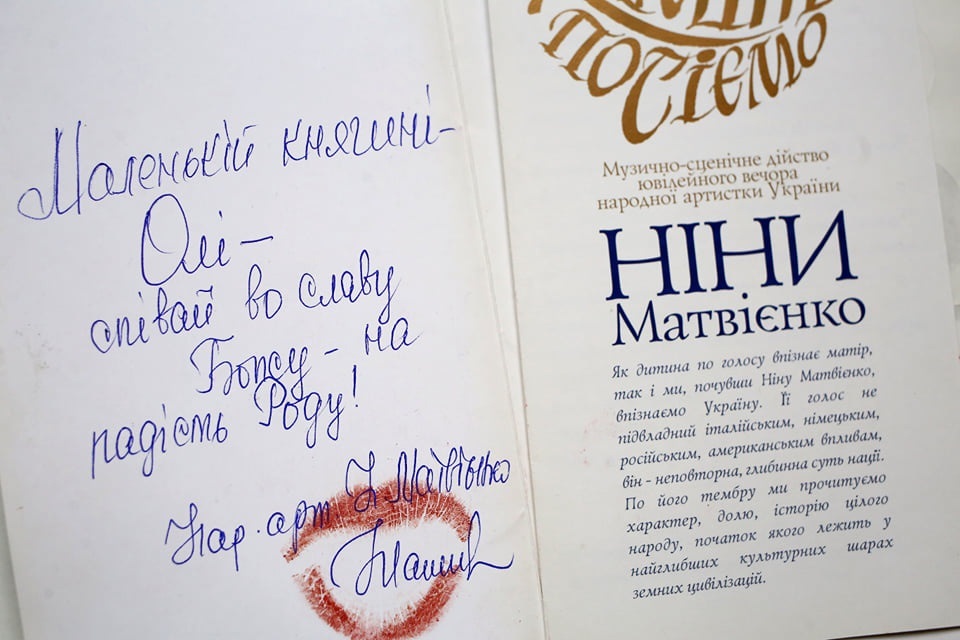 Маленькій княгині-
Олі-
співай во славу
Божу - на
радість Роду!
Нар. арт Н Матвієнко
посіємо
Музично-сценічне дійство
ювілейного вечора
народної артистки України
НІНИ
Матвієнко
Як дитина по голосу впізнає матір,
так і ми, почувши Ніну Матвієнко,
впізнаємо Україну. Її голос не
підвладний італійським, німецьким,
російським, американським впливам,
він - неповторна, глибинна суть нації.
По його тембру ми прочитуємо
характер, долю, історію цілого
народу, початок якого лежить у
найглибших культурних шарах
земних цивілізацій.